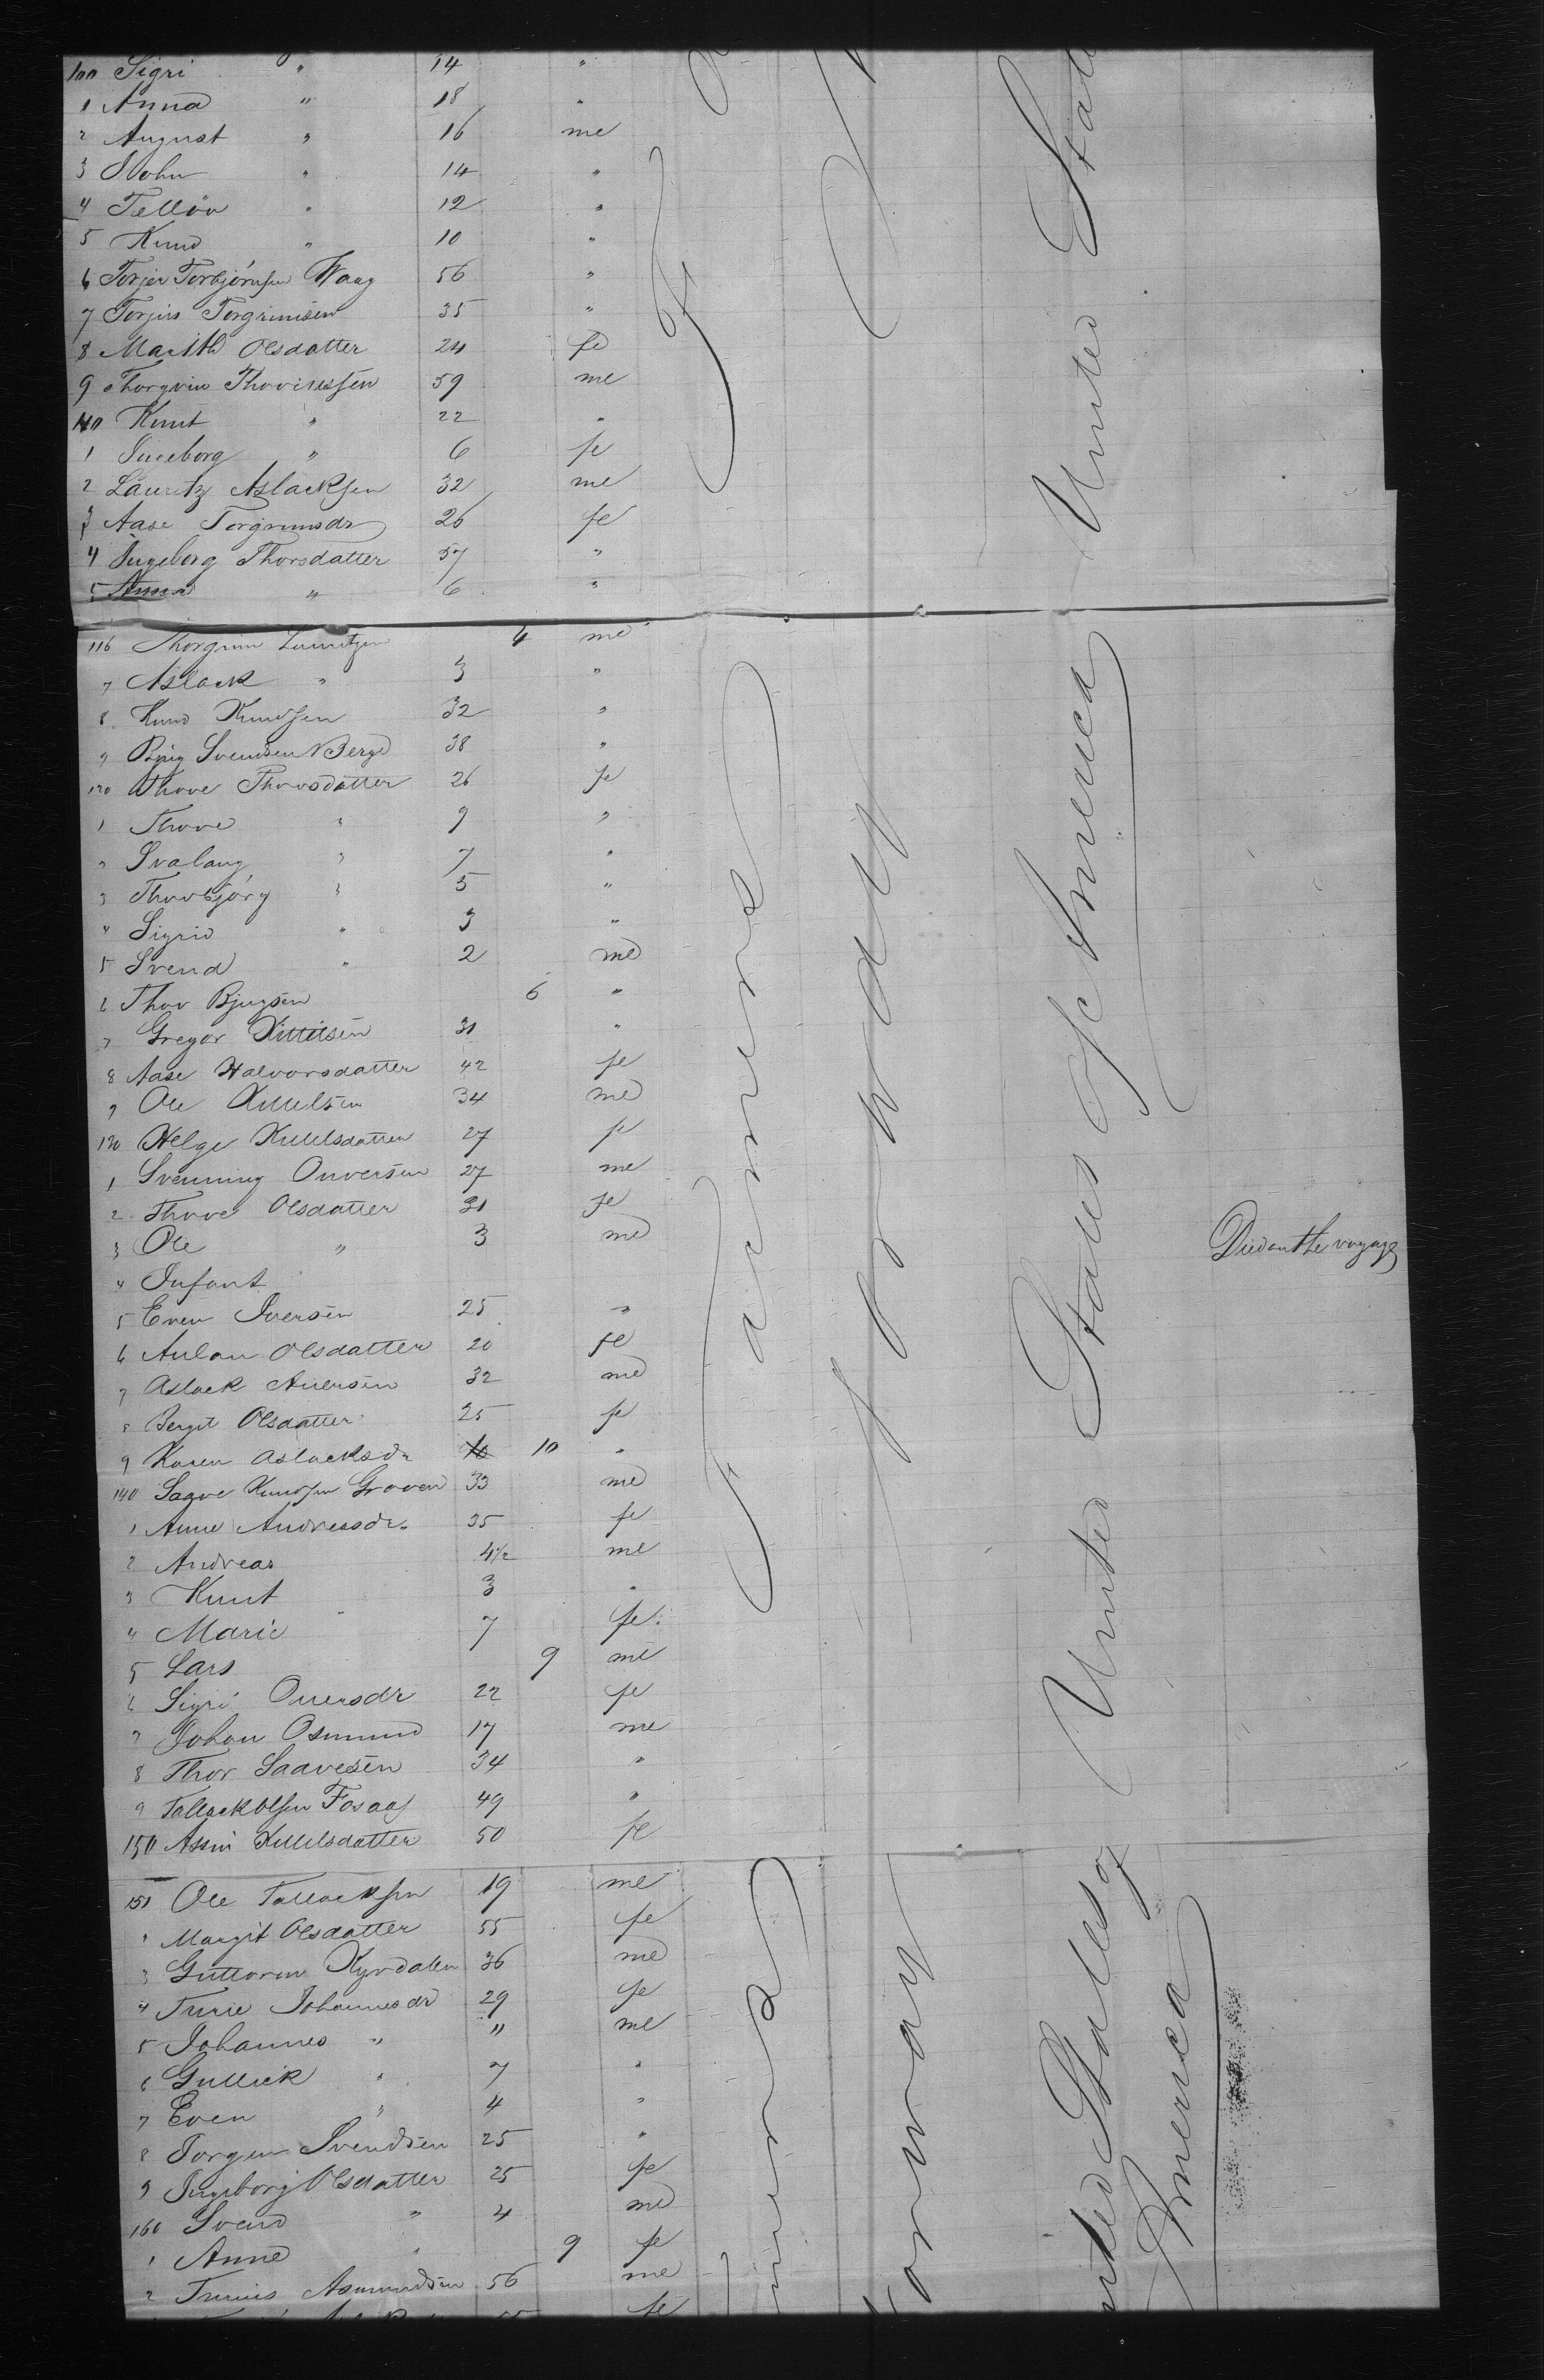 100 Sigri " 14 "
1 Anna " 18 "
2 August " 16 me
3 John " 14 "
4 Tellöv " 12 "
5 Knud " 10 "
6 Torjer Torbjörnsen Waag 56 "
7 Torjus Torgrimsen 35 "
8 Marith Olsdatter 24 fe
9 Thorgrim 59 me
110 Knut " 22 "
1 Ingeborg " 6 fe
2 Lauritz Aslacksen 32 me
3 Aase Torgrimsdr 26 fe
4 Ingeborg Thorsdatter 57 "
5 Anna " 6 "
116 Thorgrim Lauritzen 4 me
7 Aslack " 3 "
8 Knud Knudsen 32 "
9 Bjug Svendsen Berge 38 "
120 Thove Thovsdatter 26 fe
1 Thove " 9 "
2 Svalaug " 7 "
3 Thovbjörg " 5 "
4 Sigrid " 3 "
5 Svend " 2 me
6 Thov Bjugsen 6 "
7 Gregar Kittilsen 31 "
8 Aase Halvorsdatter 42 fe
9 Ole Kittelsen 34 me
130 Helge Kittelsdatter 27 fe
1 Svenning Onversen 27 me
2 Thove Olsdatter 31 fe
3 Ole " 3 me
4 Infant Died on the voyage
5 Even Iversen 25 "
6 Aulau Olsdatter 20 fe
7 Aslack 32 me
8 Bergit Olsdatter 25 fe
9 Karen Aslacksdr 10 10 "
140 Knudsen Groven 33 me
1 Anne Andreasdr. 35 fe
2 Andreas 4½ me
3 Knut 3 "
4 Marie 7 fe
5 Lars 9 me
6 Sigri 22 fe
7 Johan Osmund 17 me
8 Thor Saavesen 34 "
9 Tallack Olsen Fosaas 49 "
150 Assni Kittelsdatter 50 fe
151 Ole Tallacksen 19 me
2 Margit Olsdatter 55 fe
3 Guttorm 36 me
4 Turie Johannesdr 29 fe
5 Johannes " 11 me
6 Gullick " 7 "
7 Even " 4 "
8 Jorgen Svendsen 25 "
9 Ingeborg Olsdatter 25 fe
160 Svend " 4 me
1 Anne " 9 fe
2 Asmundsen 56 me
fe
Farmers
Norway
United States
United States of America
United States of America